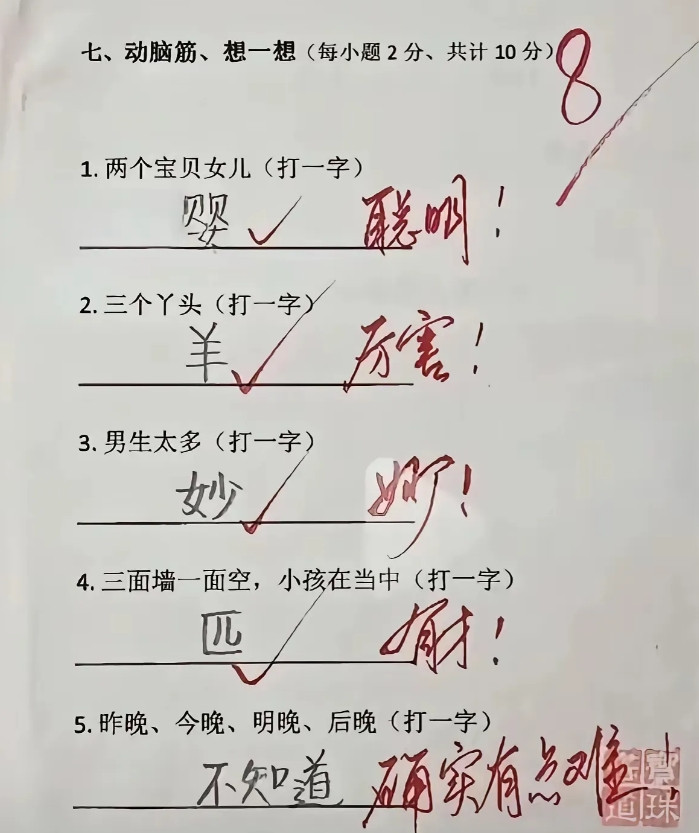 七、动脑筋、想一想（每小题2分、共计10分）
8
1. 两个宝贝女儿（打一字）
婴 聪明！
2. 三个丫头（打一字）
羊 厉害！
3. 男生太多（打一字）
妙 妙！
4. 三面墙一面空，小孩在当中（打一字）
匹 有才！
5. 昨晚、今晚、明晚、后晚（打一字）
不知道 确实有点难！